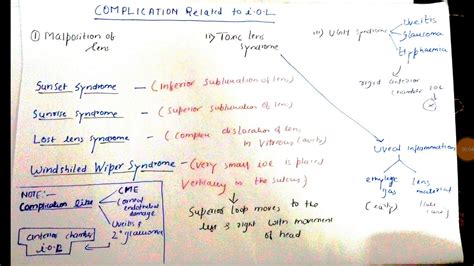 COMPLICATION Related to i.O.L
① Malposition of lens
ii) Toxic lens syndrome
iii) UGH syndrome
Uveitis
glaucoma
Hyphaemia
rigid anterior chamber IOL
Sunset Syndrome - (Inferior subluxation of lens)
Sunrise Syndrome - (Superior subluxation of lens)
Lost lens syndrome - (Complete dislocation of lens in Vitreous cavity)
Windshiled Wiper Syndrome - (Very small IOL is placed vertically in the sulcus)
Superior loop moves to the left & right with movement of head
Uveal inflammation
ethylene gas
(early)
lens material
(late case)
NOTE:-
Complication like
CME
Corneal endothelial damage
Uveitis &
2° glaucoma
anterior chamber i.O.L